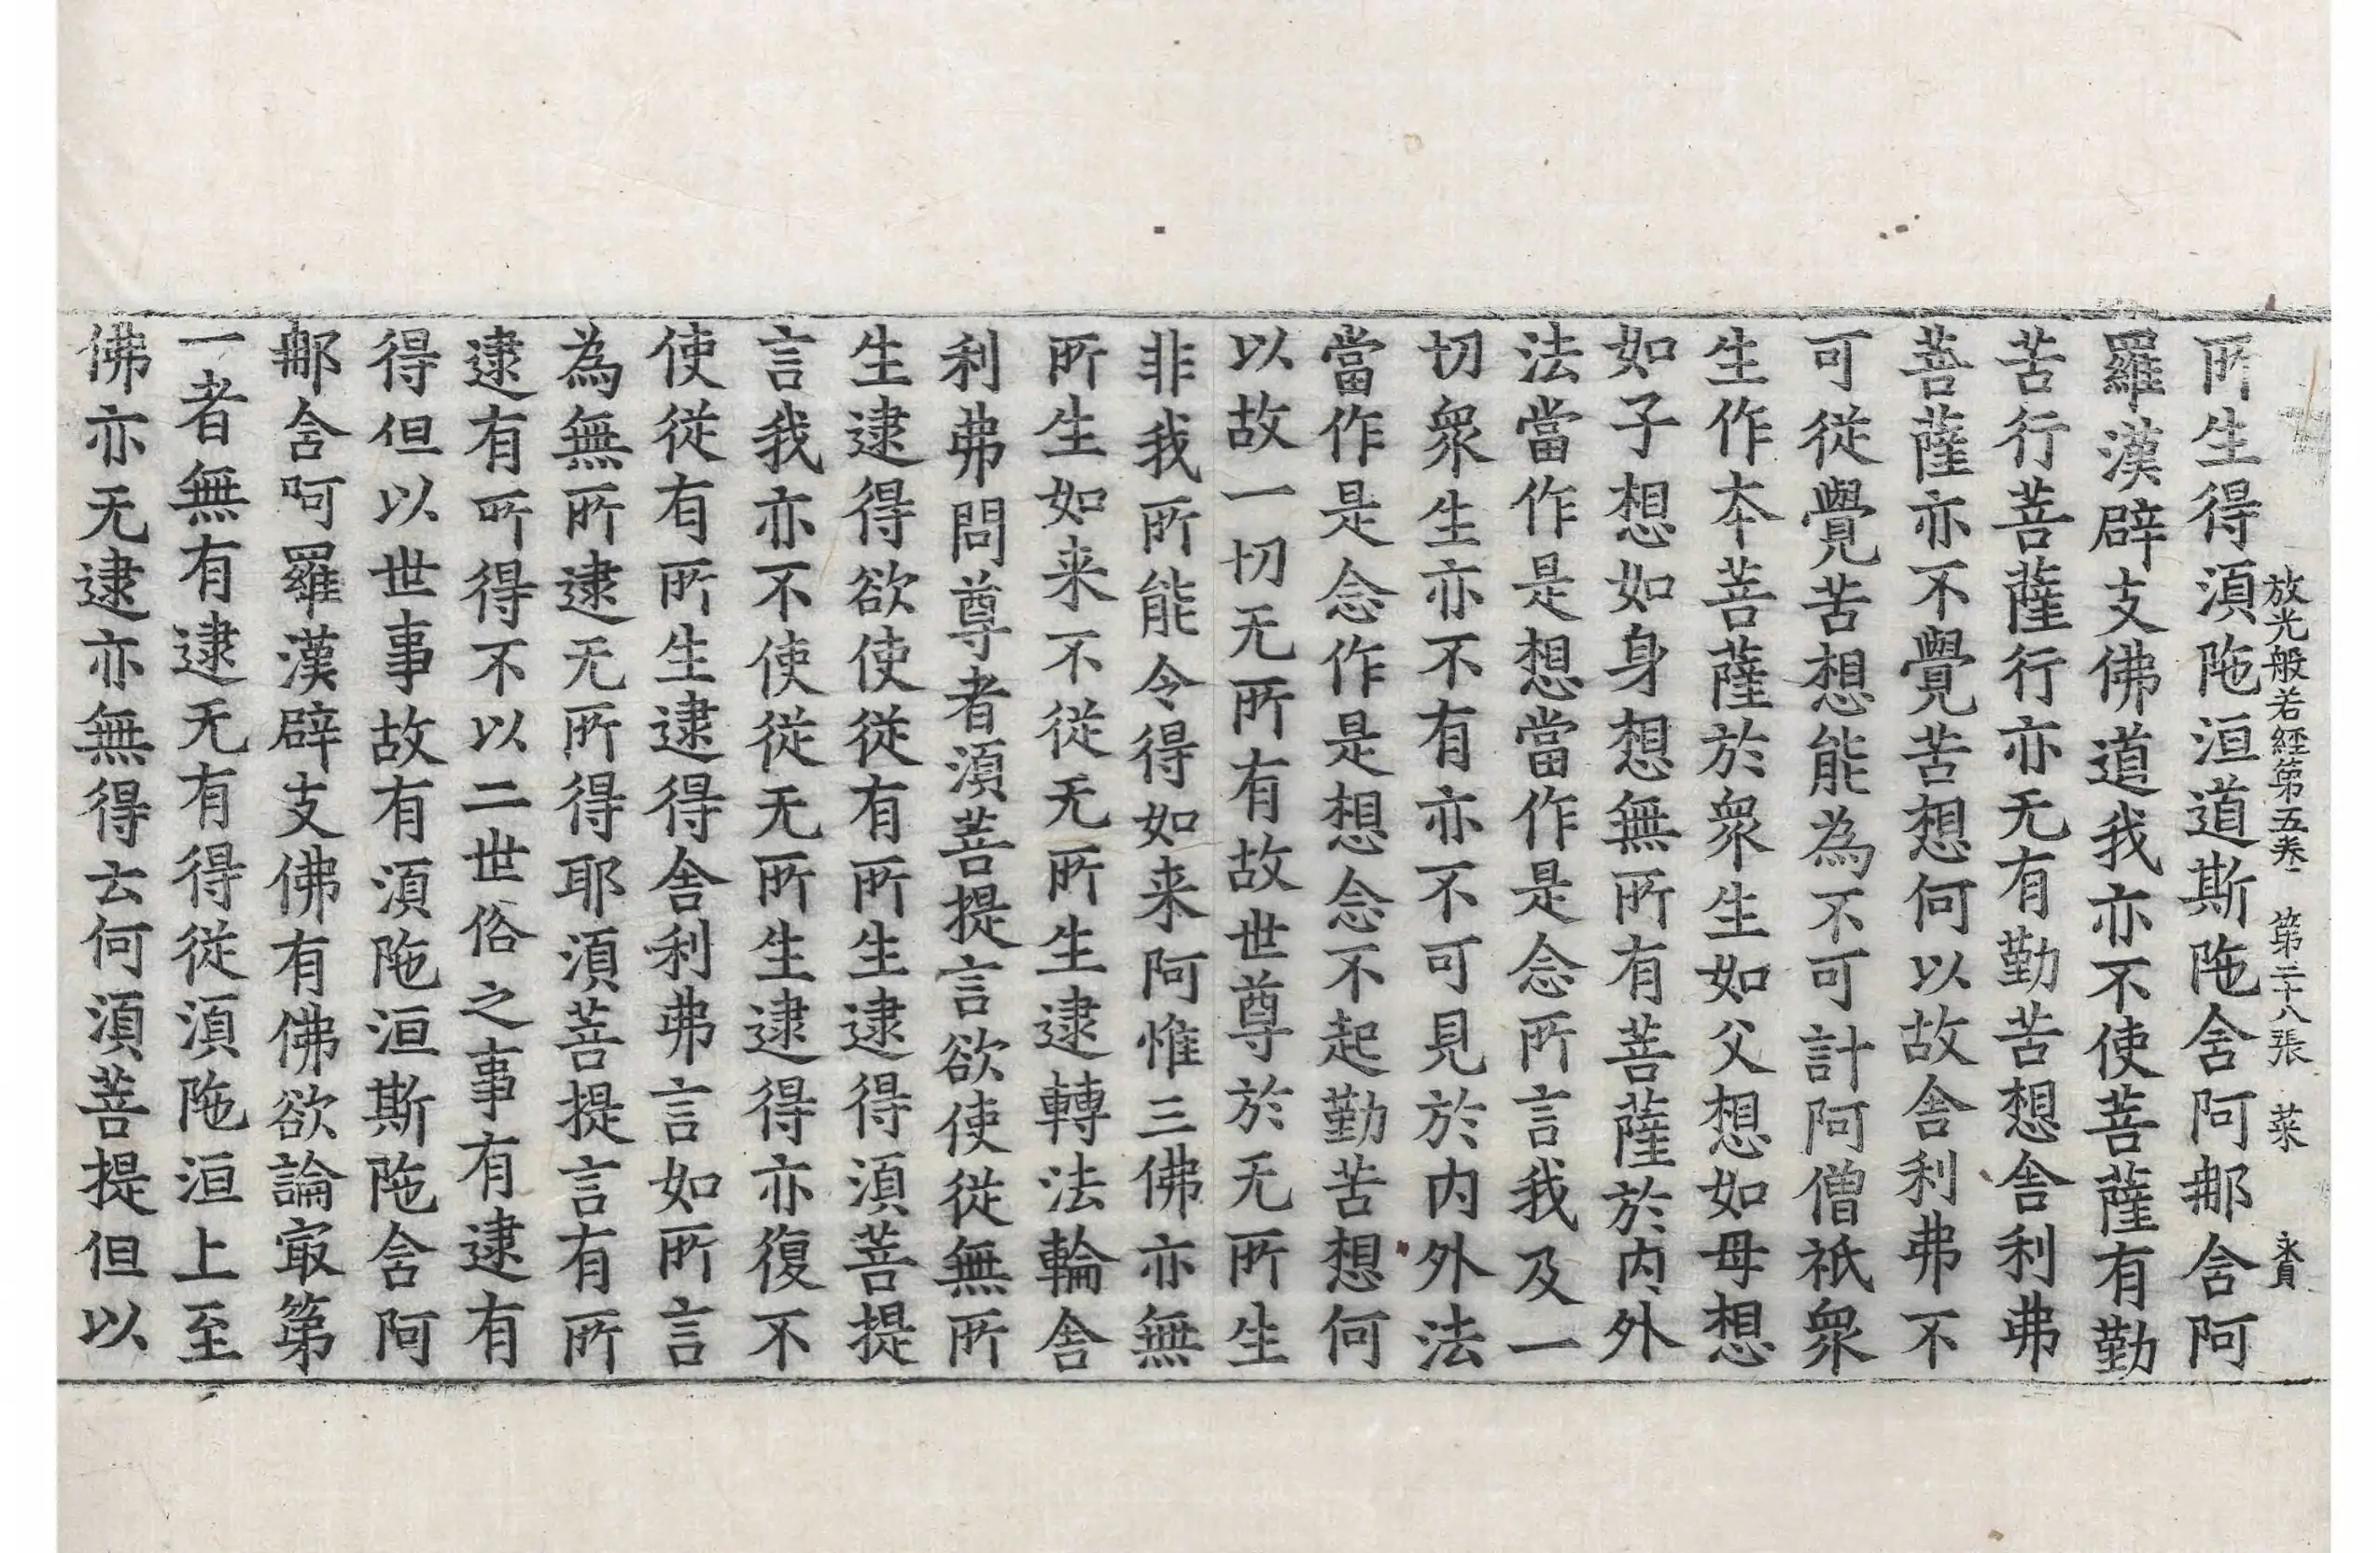 放光般若経第五卷 第二十八張 菜
所生得湏陁洹道斯陁舍阿那舍阿
羅漢辟支佛道我亦不使菩薩有勤
苦行菩薩行亦无有勤苦想舍利弗
菩薩亦不覺苦想何以故舍利弗不
可従覺苦想能為不可計阿僧祇衆
生作夲菩薩於衆生如父想如母想
如子想如身想無所有菩薩於内外
法當作是想當作是念所言我及一
切衆生亦不有亦不可見於内外法
當作是念作是想念不起勤苦想何
以故一切无所有故世尊於无所生
非我所能令得如来阿惟三佛亦無
所生如来不従无所生逮轉法輪舍
利弗問尊者湏菩提言欲使従無所
生逮得欲使従有所生逮得湏菩提
言我亦不使従无所生逮得亦復不
使従有所生逮得舍利弗言如所言
為無所逮无所得耶湏菩提言有所
逮有所得不以二世俗之事有逮有
得但以世事故有湏陁洹斯陁舍阿
那舍呵羅漢辟支佛有佛欲論㝡第
一者無有逮无有得従湏陁洹上至
佛亦无逮亦無得云何湏菩提但以